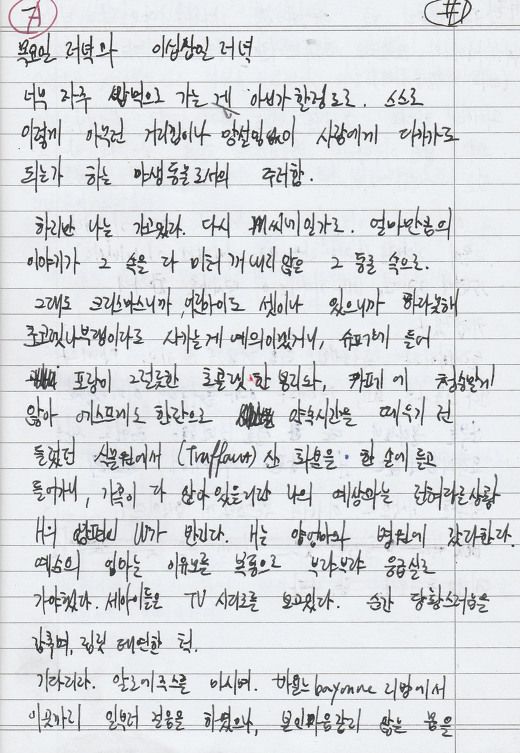 7) #1
목요일 저녁과 이십삼일 저녁
너무 자주 밥먹으로 가는 게 아닌가 할정도로. 스스로
이렇게 아무런 거리낌이나 망설임없이 사람에게 다가가도
되는가 하는 야생동물로서의 주저함.
하지만 나는 가고있다. 다시 씨네일가로. 얼마만큼의
이야기가 그 속을 다 미터 꺼내지 않은 그 통을 속으로.
그래도 크리스마스니까, 어린아이도 셋이나 있으니까 하다못해
초코렛나부랭이라도 사가는게 예의이겠거니, 슈퍼에 들어
포장이 그럴듯한 초콜렛 한 봉지와, 카페에 청승맞게
앉아 에스프레소 한잔으로 약속시간을 때우기 전
들렀던 식물원에서 (Truffaut) 산 화분을 한 손에 들고
들어가니, 가족이 다 앉아 있을거란 나의 예상과는 전혀다른상황
H의 남편인 W가 반긴다. H는 양엄마와 병원에 갔다한다.
예순의 엄마는 이유모를 복통으로 부랴부랴 응급실로
가야했다. 세아이들은 TV 시리즈를 보고있다. 순간 당황스러움을
감추며, 짐짓 태연한 척.
기다리라. 알로에주스를 마시며. 하물며 bayonne 지방에서
이곳까지 일부러 걸음을 하였으나, 본인마음같지 않는 몸을